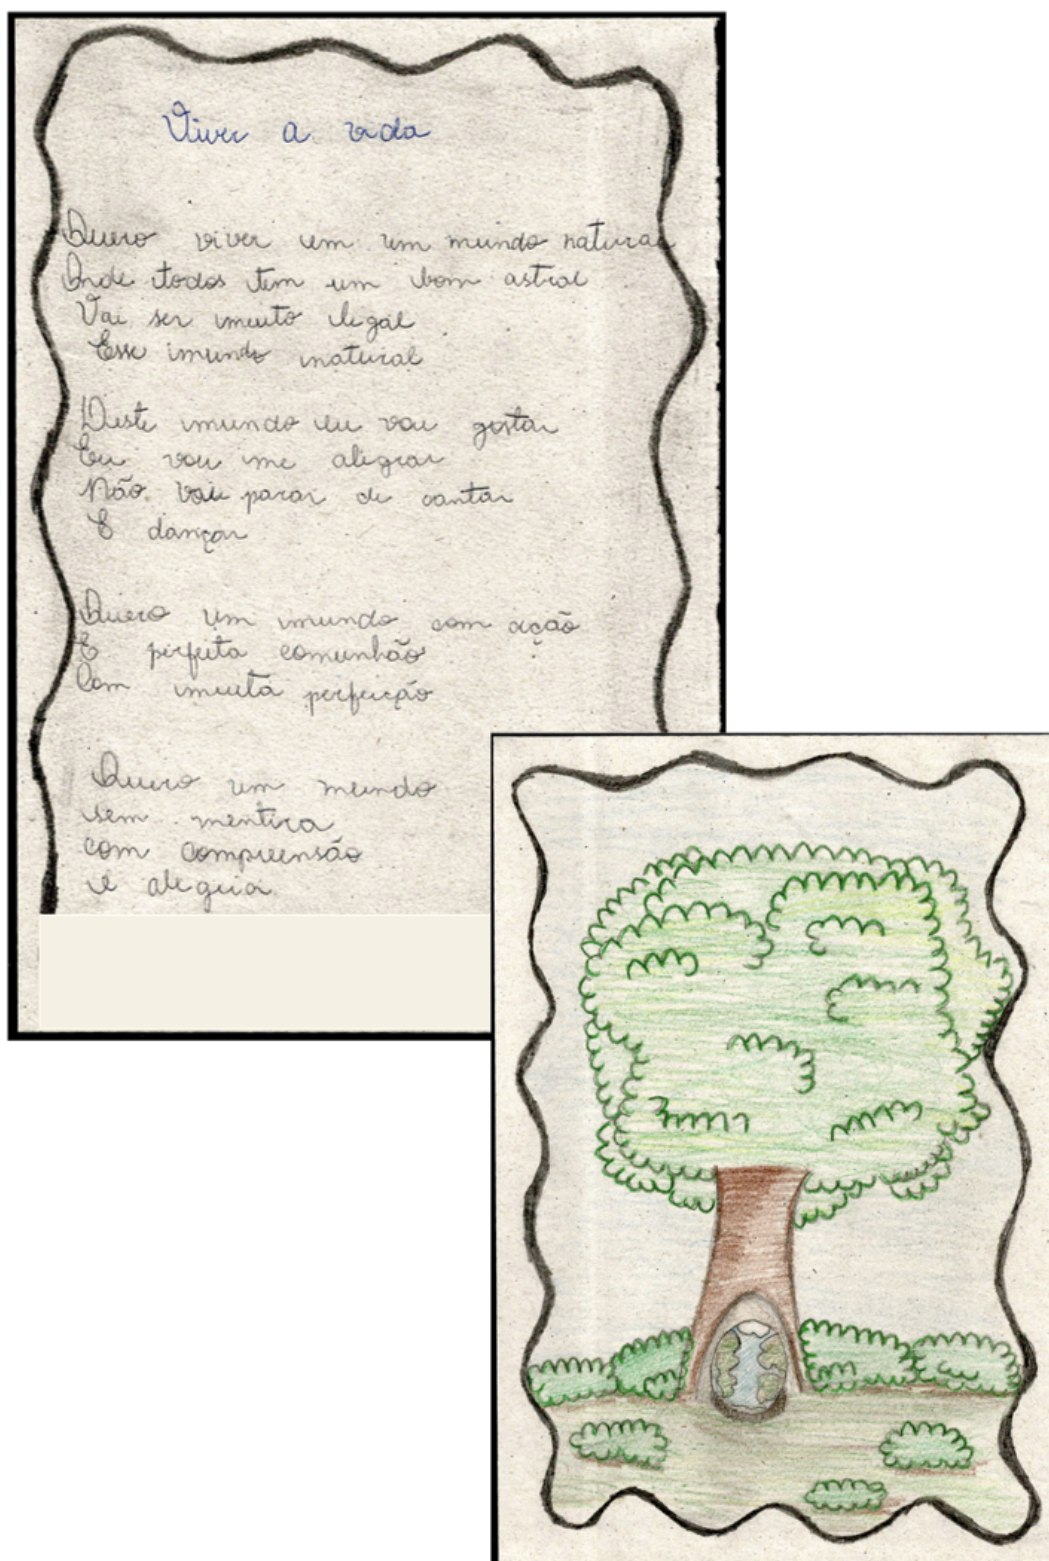 Viver a vida
Quero viver em um mundo natural
Onde todos tem um bom astral
Vai ser muito legal
Esse mundo natural
Deste mundo eu vou gostar
Eu vou me alegrar
Não vou parar de cantar
E dançar
Quero um mundo com ação
E perfeita comunhão
Com muita perfeição
Quero um mundo
sem mentira
com compreensão
e alegria